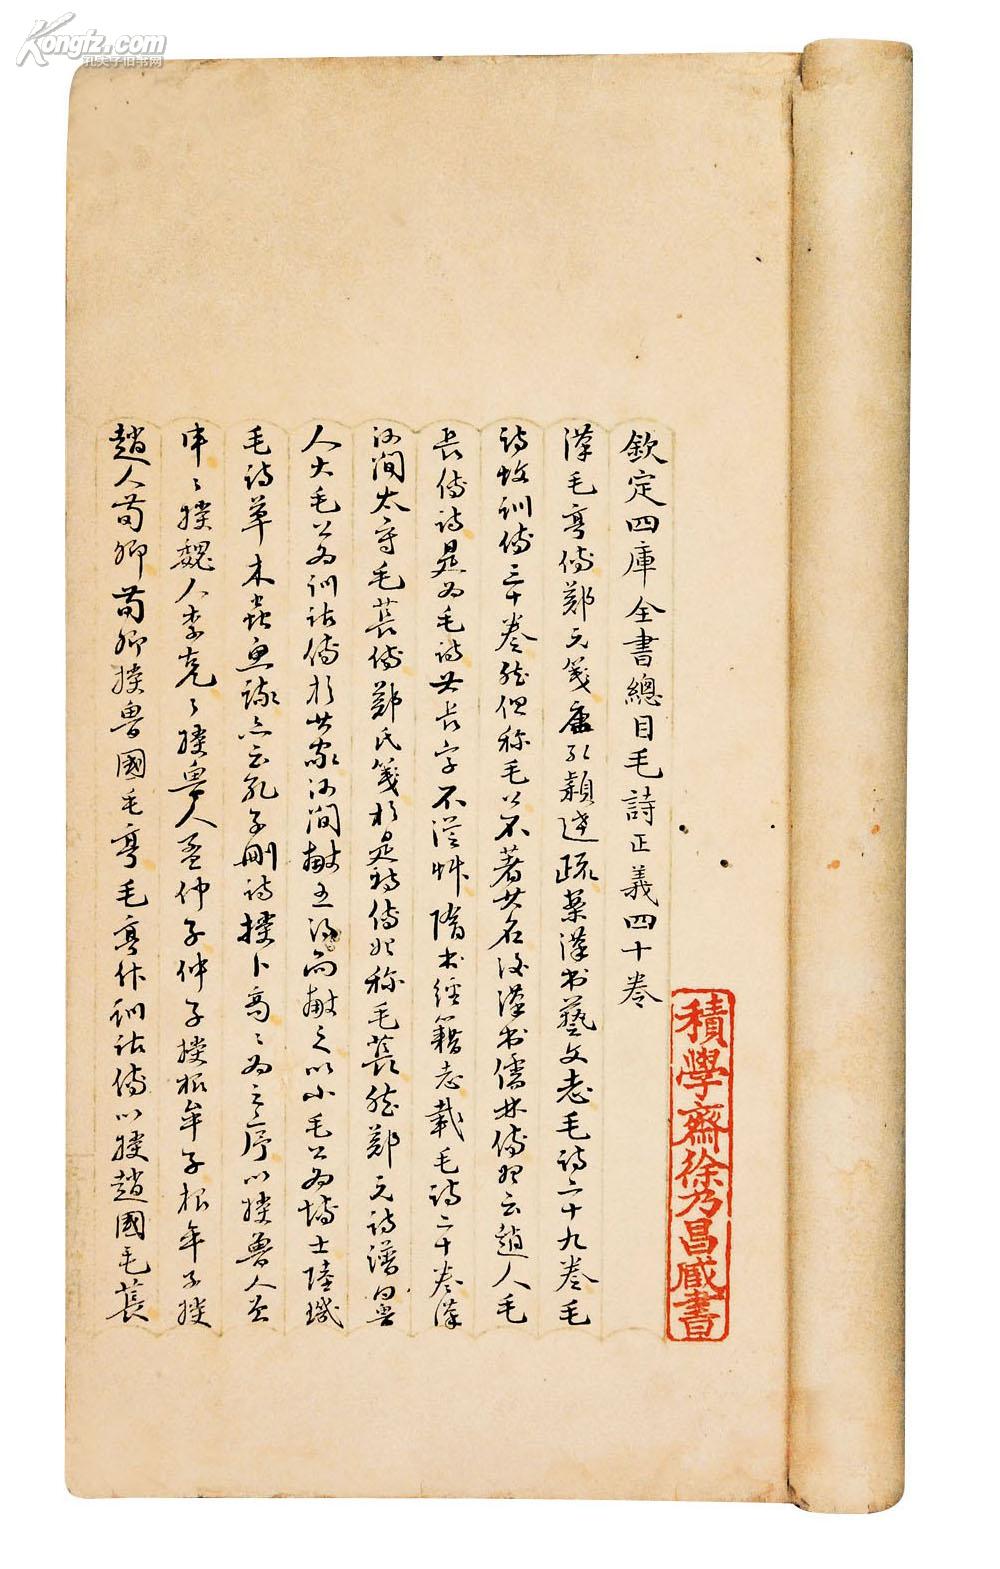 欽定四庫全書總目毛詩正義四十卷
漢毛亨傳鄭元箋唐孔穎達疏案漢书藝文志毛詩二十九卷毛
詩故訓傳三十卷然但称毛公不著其名後漢书儒林傳始云趙人毛
長傳詩是为毛詩其長字不從艸隋书經籍志載毛詩二十卷漢
河間太守毛萇傳鄭氏箋於是詩傳始称毛萇然鄭元詩譜曰魯
人大毛公为訓詁傳於其家河間獻王得而獻之以小毛公为博士陸璣
毛詩草木蟲魚疏亦云孔子刪詩授卜商〻为之序以授魯人曾
申〻授魏人李克〻授魯人孟仲子仲子授根牟子根牟子授
趙人荀卿荀卿授魯國毛亨毛亨作訓詁傳以授趙國毛萇
積學齋徐乃昌藏書
Kongfz.com
孔夫子旧书网